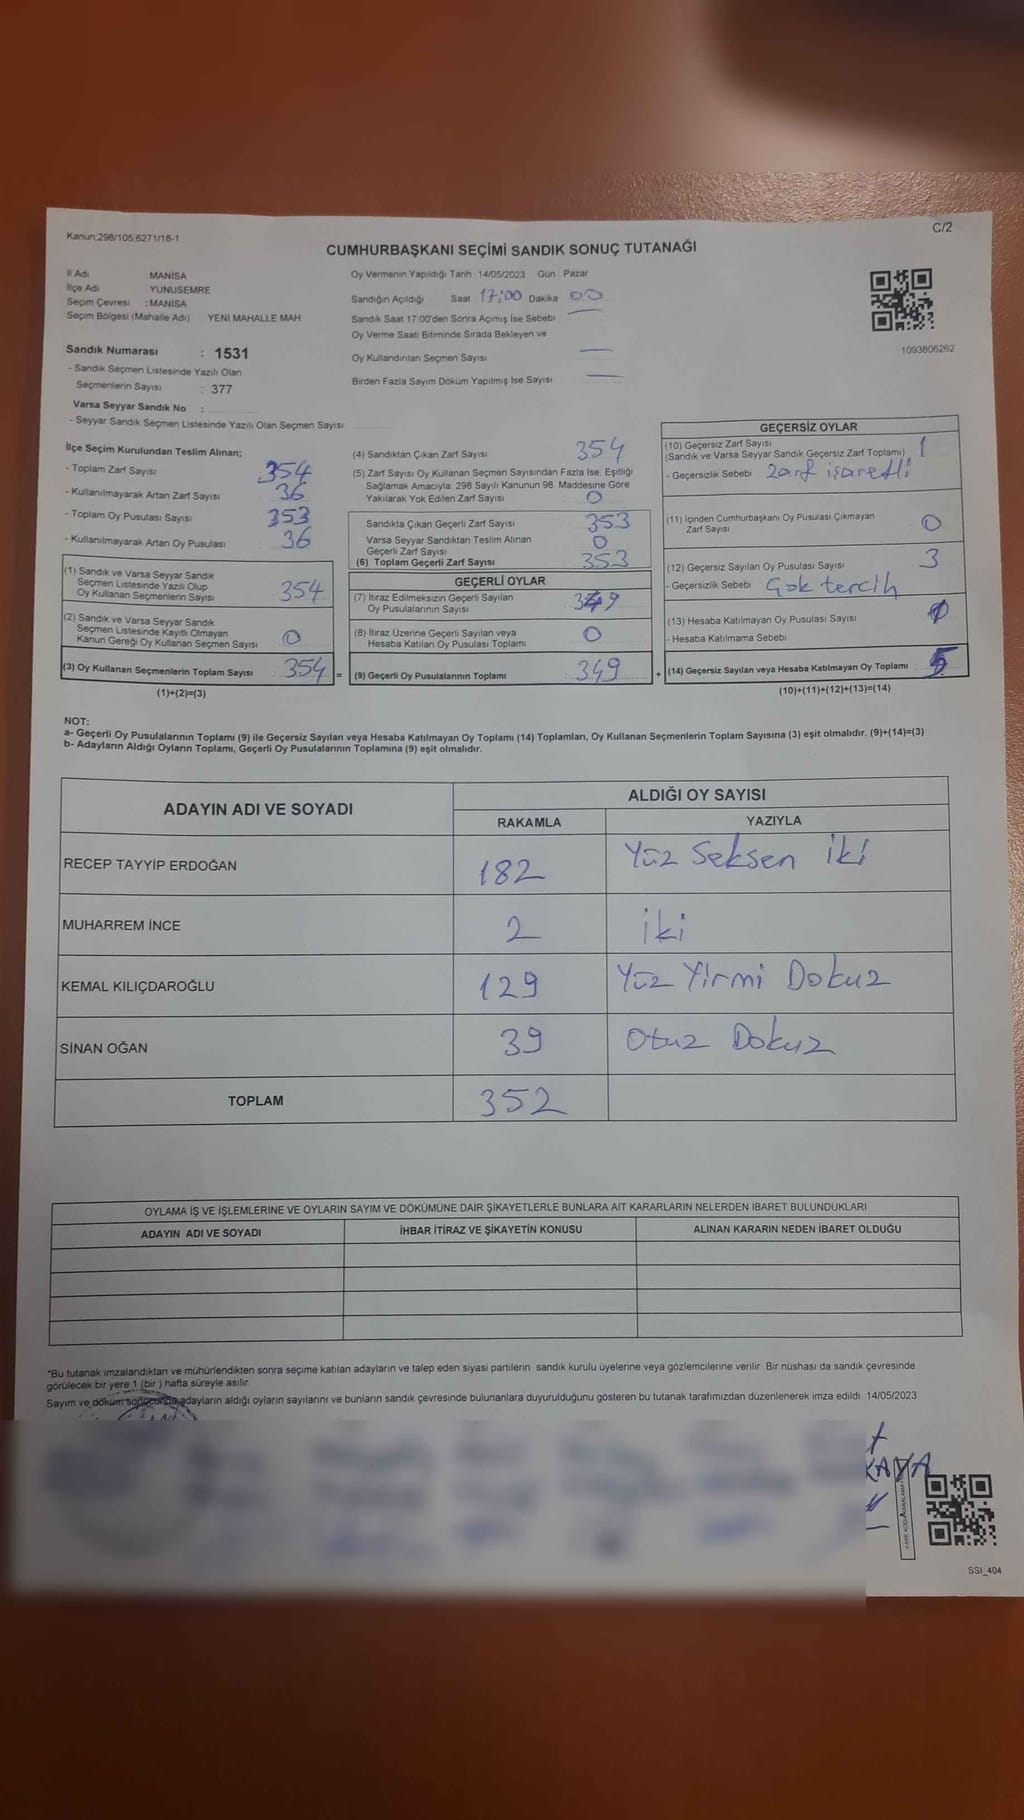 Kanun:298/105;6271/18-1
C/2
CUMHURBAŞKANI SEÇİMİ SANDIK SONUÇ TUTANAĞI
İl Adı : MANİSA
İlçe Adı YUNUSEMRE
Seçim Çevresi : MANİSA
Seçim Bölgesi (Mahalle Adı) YENİ MAHALLE MAH.
Oy Vermenin Yapıldığı Tarih 14/05/2023 Gün : Pazar
Sandığın Açıldığı Saat 17:00 Dakika 00
Sandık Saat 17:00'den Sonra Açılmış İse Sebebi
Oy Verme Saati Bitiminde Sırada Bekleyen ve
Oy Kullandırılan Seçmen Sayısı
Birden Fazla Sayım Döküm Yapılmış İse Sayısı
1093805262
Sandık Numarası : 1531
- Sandık Seçmen Listesinde Yazılı Olan
Seçmenlerin Sayısı : 377
Varsa Seyyar Sandık No :
- Seyyar Sandık Seçmen Listesinde Yazılı Olan Seçmen Sayısı
İlçe Seçim Kurulundan Teslim Alınan;
- Toplam Zarf Sayısı 354
- Kullanılmayarak Artan Zarf Sayısı 36
- Toplam Oy Pusulası Sayısı 353
- Kullanılmayarak Artan Oy Pusulası 36
(1) Sandık ve Varsa Seyyar Sandık
Seçmen Listesinde Yazılı Olup
Oy Kullanan Seçmenlerin Sayısı 354
(2) Sandık ve Varsa Seyyar Sandık
Seçmen Listesinde Kayıtlı Olmayan
Kanun Gereği Oy Kullanan Seçmen Sayısı 0
(3) Oy Kullanan Seçmenlerin Toplam Sayısı : 354 =
(1)+(2)=(3)
(4) Sandıktan Çıkan Zarf Sayısı 354
(5) Zarf Sayısı Oy Kullanan Seçmen Sayısından Fazla İse, Eşitliği
Sağlamak Amacıyla, 298 Sayılı Kanunun 98. Maddesine Göre
Yakılarak Yok Edilen Zarf Sayısı : 0
Sandıkta Çıkan Geçerli Zarf Sayısı : 353
Varsa Seyyar Sandıktan Teslim Alınan
Geçerli Zarf Sayısı 0
(6) Toplam Geçerli Zarf Sayısı : 353
GEÇERLİ OYLAR
(7) İtiraz Edilmeksizin Geçerli Sayılan
Oy Pusulalarının Sayısı : 349
(8) İtiraz Üzerine Geçerli Sayılan veya
Hesaba Katılan Oy Pusulası Toplamı : 0
(9) Geçerli Oy Pusulalarının Toplamı : 349 +
GEÇERSİZ OYLAR
(10) Geçersiz Zarf Sayısı
(Sandık ve Varsa Seyyar Sandık Geçersiz Zarf Toplamı) 1
- Geçersizlik Sebebi Zarf işaretli
(11) İçinden Cumhurbaşkanı Oy Pusulası Çıkmayan
Zarf Sayısı 0
(12) Geçersiz Sayılan Oy Pusulası Sayısı 3
- Geçersizlik Sebebi Çok tercih
(13) Hesaba Katılmayan Oy Pusulası Sayısı
- Hesaba Katılmama Sebebi
(14) Geçersiz Sayılan veya Hesaba Katılmayan Oy Toplamı : 5
(10)+(11)+(12)+(13)=(14)
NOT:
a- Geçerli Oy Pusulalarının Toplamı (9) ile Geçersiz Sayılan veya Hesaba Katılmayan Oy Toplamı (14) Toplamları, Oy Kullanan Seçmenlerin Toplam Sayısına (3) eşit olmalıdır. (9)+(14)=(3)
b- Adayların Aldığı Oyların Toplamı, Geçerli Oy Pusulalarının Toplamına (9) eşit olmalıdır.
ADAYIN ADI VE SOYADI
ALDIĞI OY SAYISI
RAKAMLA YAZIYLA
RECEP TAYYİP ERDOĞAN 182 Yüz Seksen iki
MUHARREM İNCE 2 iki
KEMAL KILIÇDAROĞLU 129 Yüz Yirmi Dokuz
SİNAN OĞAN 39 Otuz Dokuz
TOPLAM 352
OYLAMA İŞ VE İŞLEMLERİNE VE OYLARIN SAYIM VE DÖKÜMÜNE DAİR ŞİKAYETLERLE BUNLARA AİT KARARLARIN NELERDEN İBARET BULUNDUKLARI
ADAYIN ADI VE SOYADI İHBAR İTİRAZ VE ŞİKAYETİN KONUSU ALINAN KARARIN NEDEN İBARET OLDUĞU
*Bu tutanak imzalandıktan ve mühürlendikten sonra seçime katılan adayların ve talep eden siyasi partilerin sandık kurulu üyelerine veya gözlemcilerine verilir. Bir nüshası da sandık çevresinde
görülecek bir yere 1 (bir ) hafta süreyle asılır.
Sayım ve döküm sonucunda adayların aldığı oyların sayılarını ve bunların sandık çevresinde bulunanlara duyurulduğunu gösteren bu tutanak tarafımızdan düzenlenerek imza edildi. 14/05/2023
KAYA
SSI_404